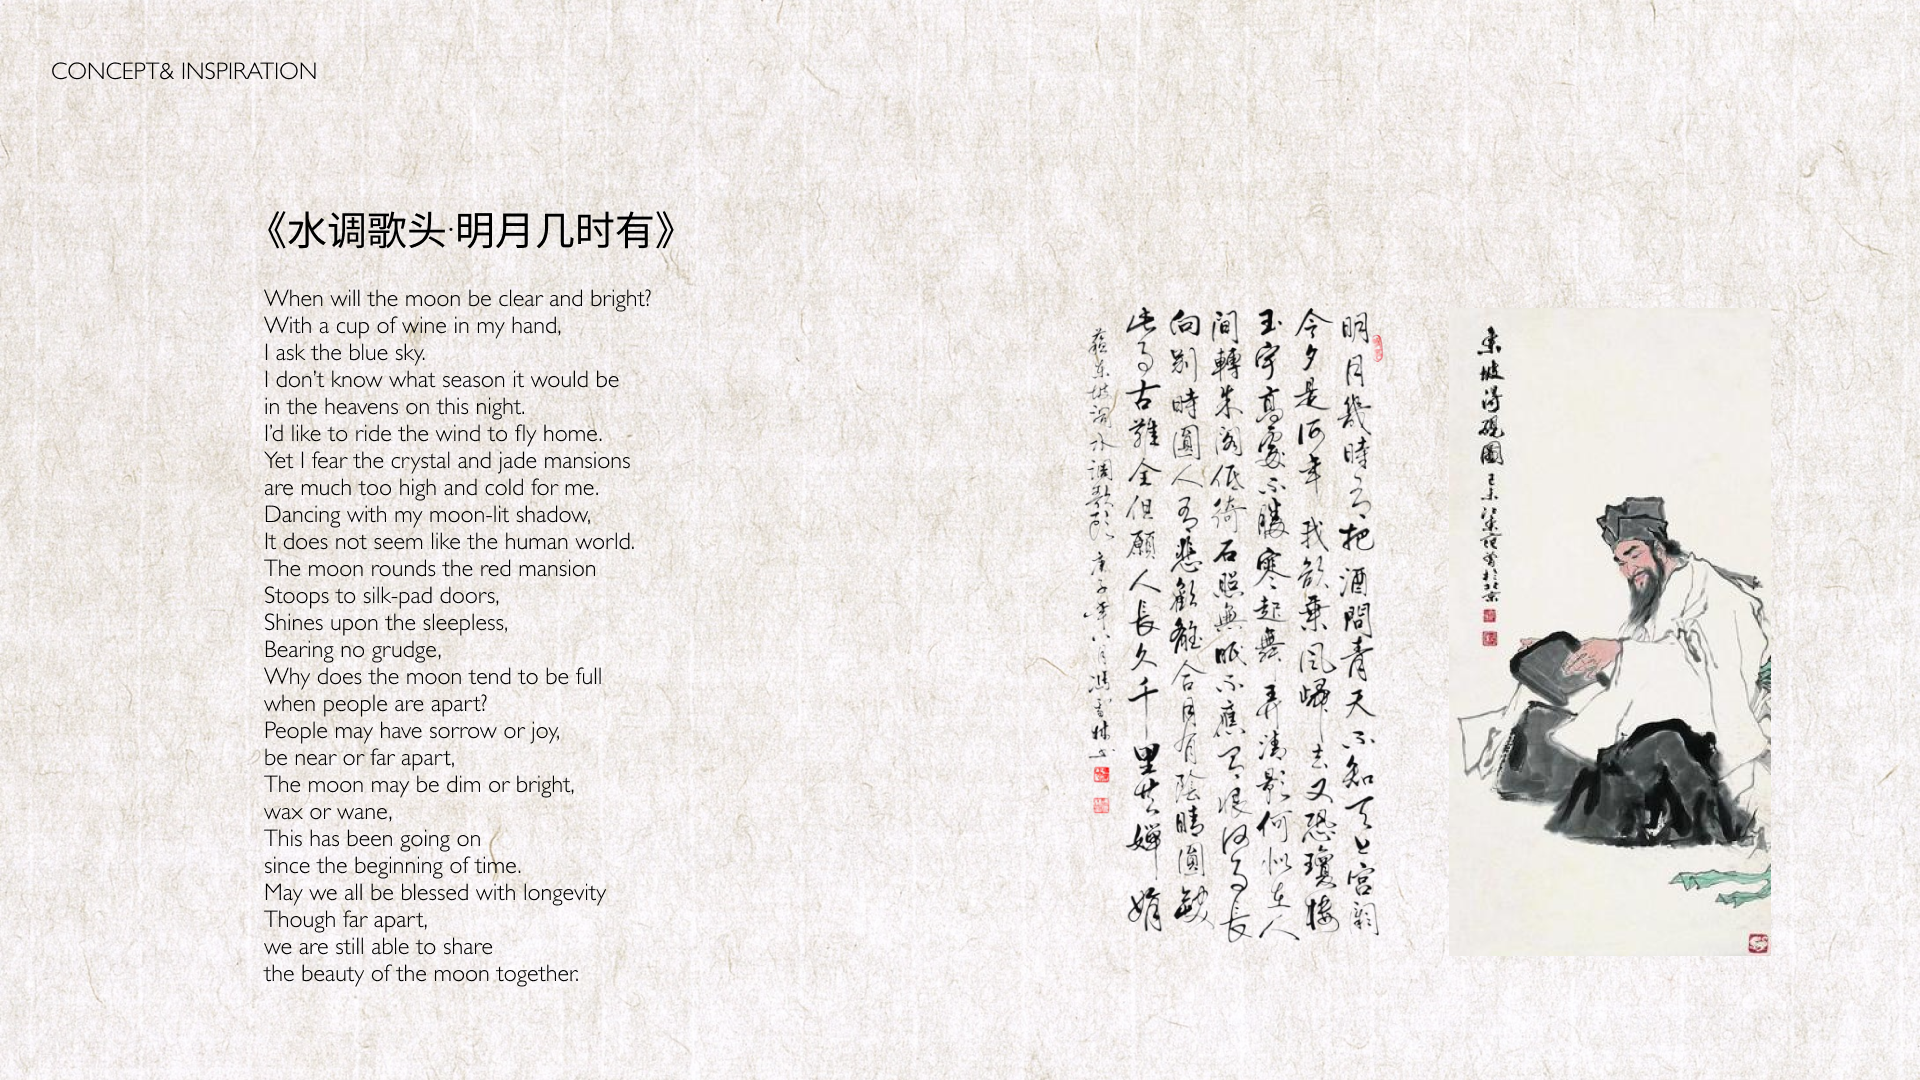 CONCEPT& INSPIRATION
《水调歌头·明月几时有》
When will the moon be clear and bright?
With a cup of wine in my hand,
I ask the blue sky.
I don't know what season it would be
in the heavens on this night.
I'd like to ride the wind to fly home.
Yet I fear the crystal and jade mansions
are much too high and cold for me.
Dancing with my moon-lit shadow,
It does not seem like the human world.
The moon rounds the red mansion
Stoops to silk-pad doors,
Shines upon the sleepless,
Bearing no grudge,
Why does the moon tend to be full
when people are apart?
People may have sorrow or joy,
be near or far apart,
The moon may be dim or bright,
wax or wane,
This has been going on
since the beginning of time.
May we all be blessed with longevity
Though far apart,
we are still able to share
the beauty of the moon together.
明月幾時有把酒問青天不知天上宮闕
今夕是何年我欲乘風歸去又恐瓊樓
玉宇高處不勝寒起舞弄清影何似在人
間轉朱閣低綺户照無眠不應有恨何事長
向別時圓人有悲歡離合月有陰晴圓缺
此事古難全但願人長久千里共嬋娟
蘇東坡詞水調歌頭 庚子年八月馮
東坡得硯圖 己未江東范曾於北京